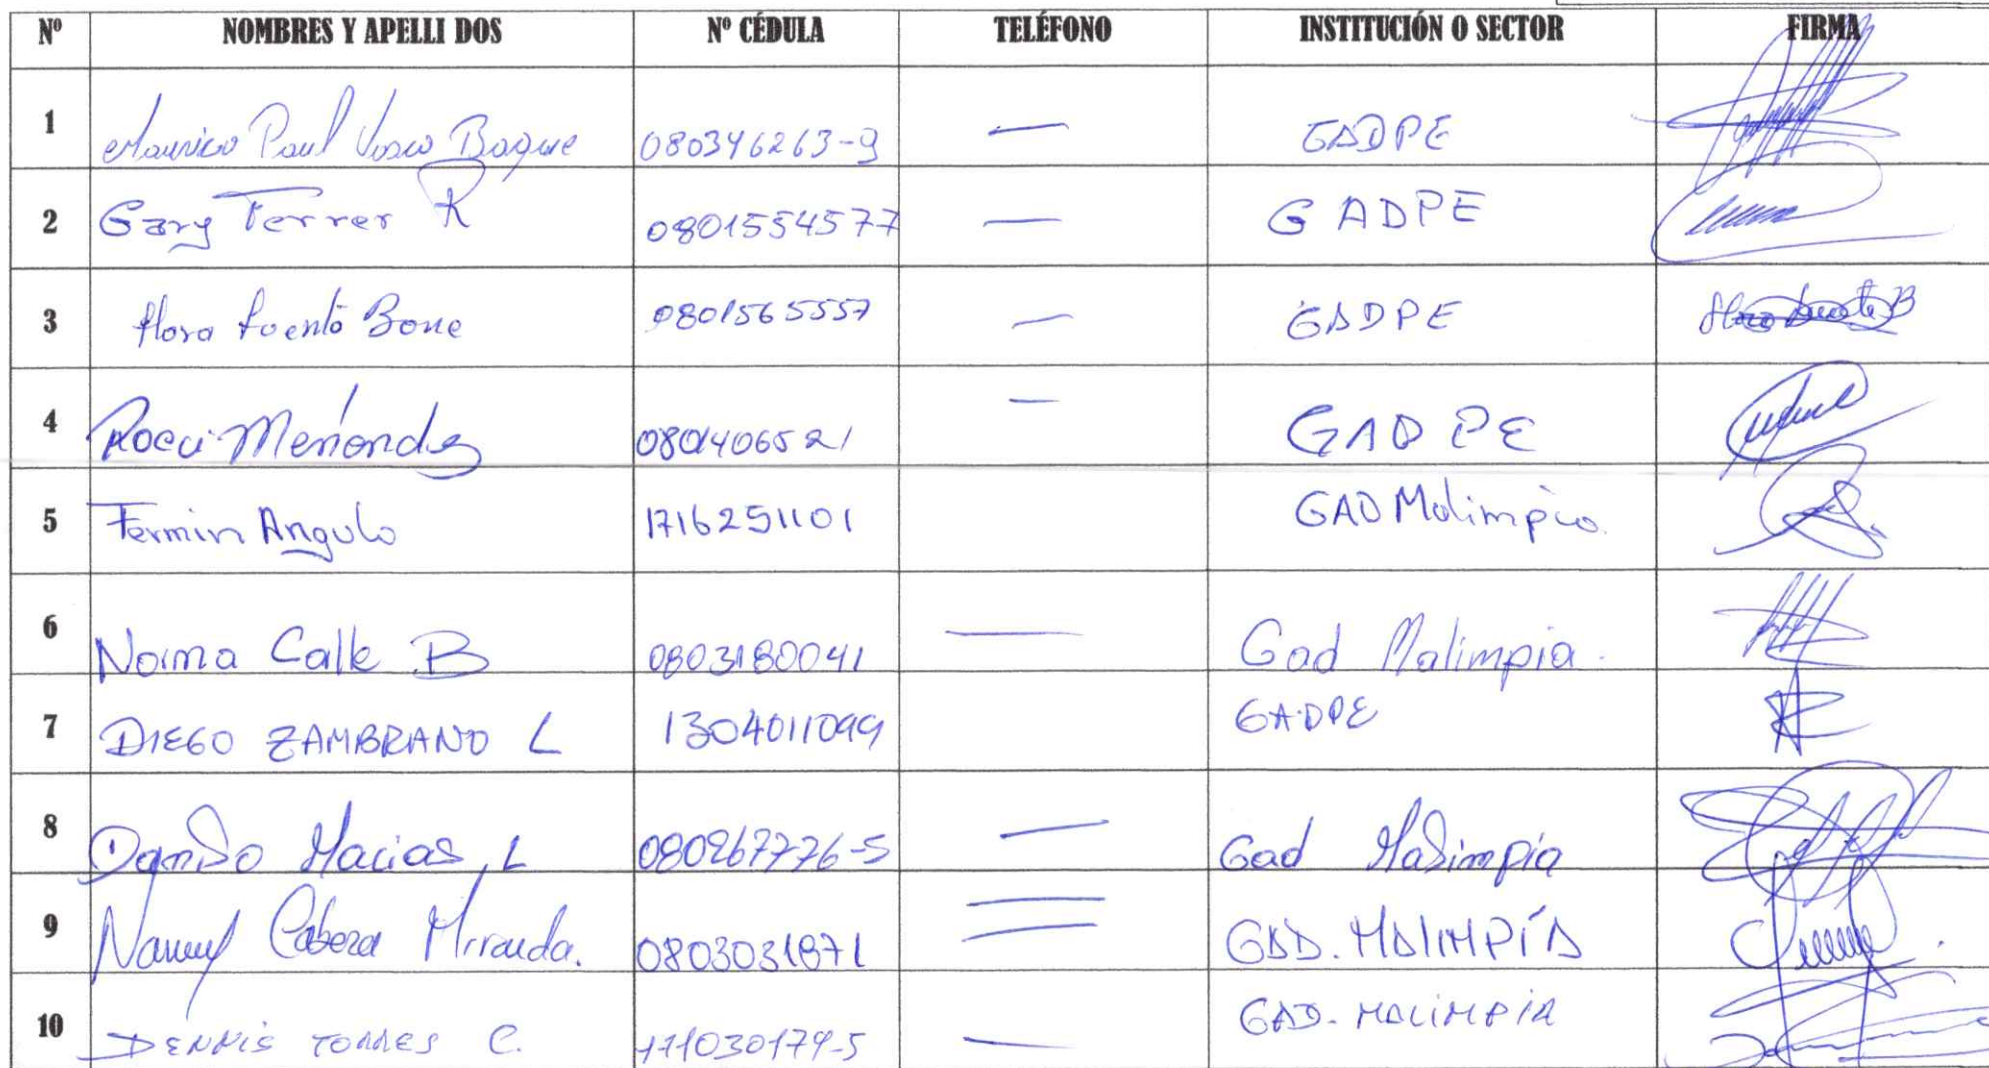 Nº NOMBRES Y APELLI DOS Nº CÉDULA TELÉFONO INSTITUCIÓN O SECTOR FIRMA
1 Mauricio Paul Vasco Baque 080346263-9 — GADPE
2 Gary Ferrer R 0801554577 — GADPE
3 Bone 0801565557 — GADPE
4 0801406521 — GADPE
5 Fermin Angulo 1716251101 GAD Malimpia.
6 Norma Calle B 0803180041 — Gad Malimpia.
7 DIEGO ZAMBRANO L 1304011099 GADPE
8 Danilo Macias L 080267776-5 — Gad Malimpia
9 Nancy Cabeza Miranda. 0803031871 — GAD. MALIMPÍA
10 DENNIS TORRES C. 171030174-5 — GAD. MALIMPIA